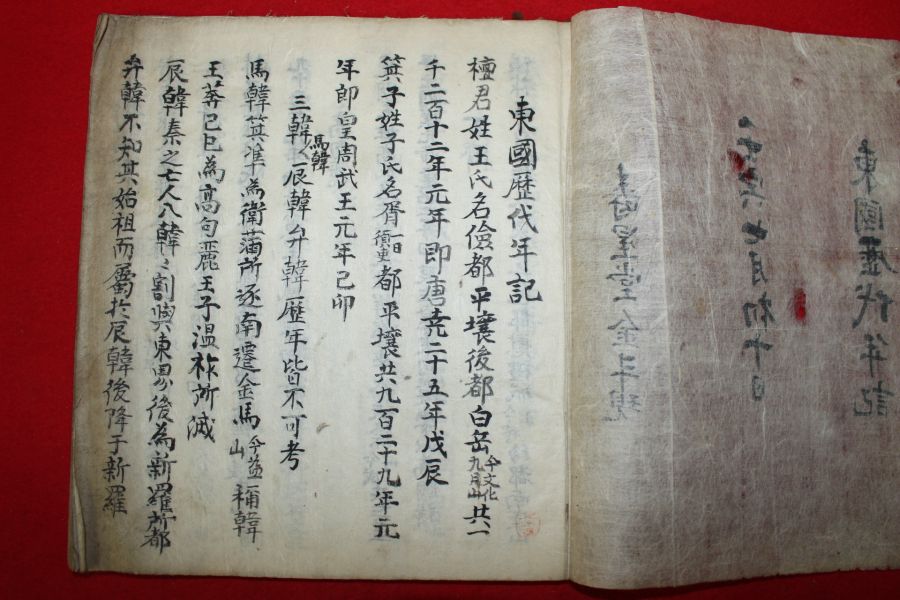 東國歷代年記
七月初十日
堂金斗現
東國歷代年記
檀君姓王氏名儉都平壤後都白岳今文化九月山共一
千二百十二年元年即唐堯二十五年戊辰
箕子姓子氏名胥一曰須臾都平壤共九百二十九年元
年即皇周武王元年己卯
三韓馬韓辰韓弁韓歷年皆不可考
馬韓箕準為衛滿所逐南遷金馬今益山稱韓
王莽己巳為高句麗王子溫祚所滅
辰韓秦之亡人入韓〻割與東界後為新羅所都
弁韓不知其始祖而屬於辰韓後降于新羅